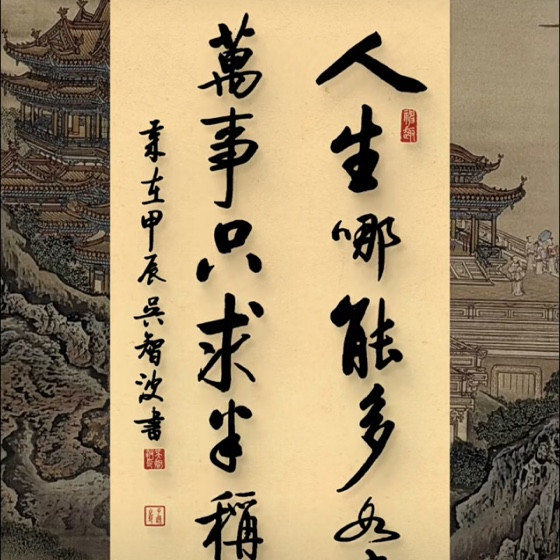 人生哪能多如
萬事只求半稱
歲在甲辰吳智波書